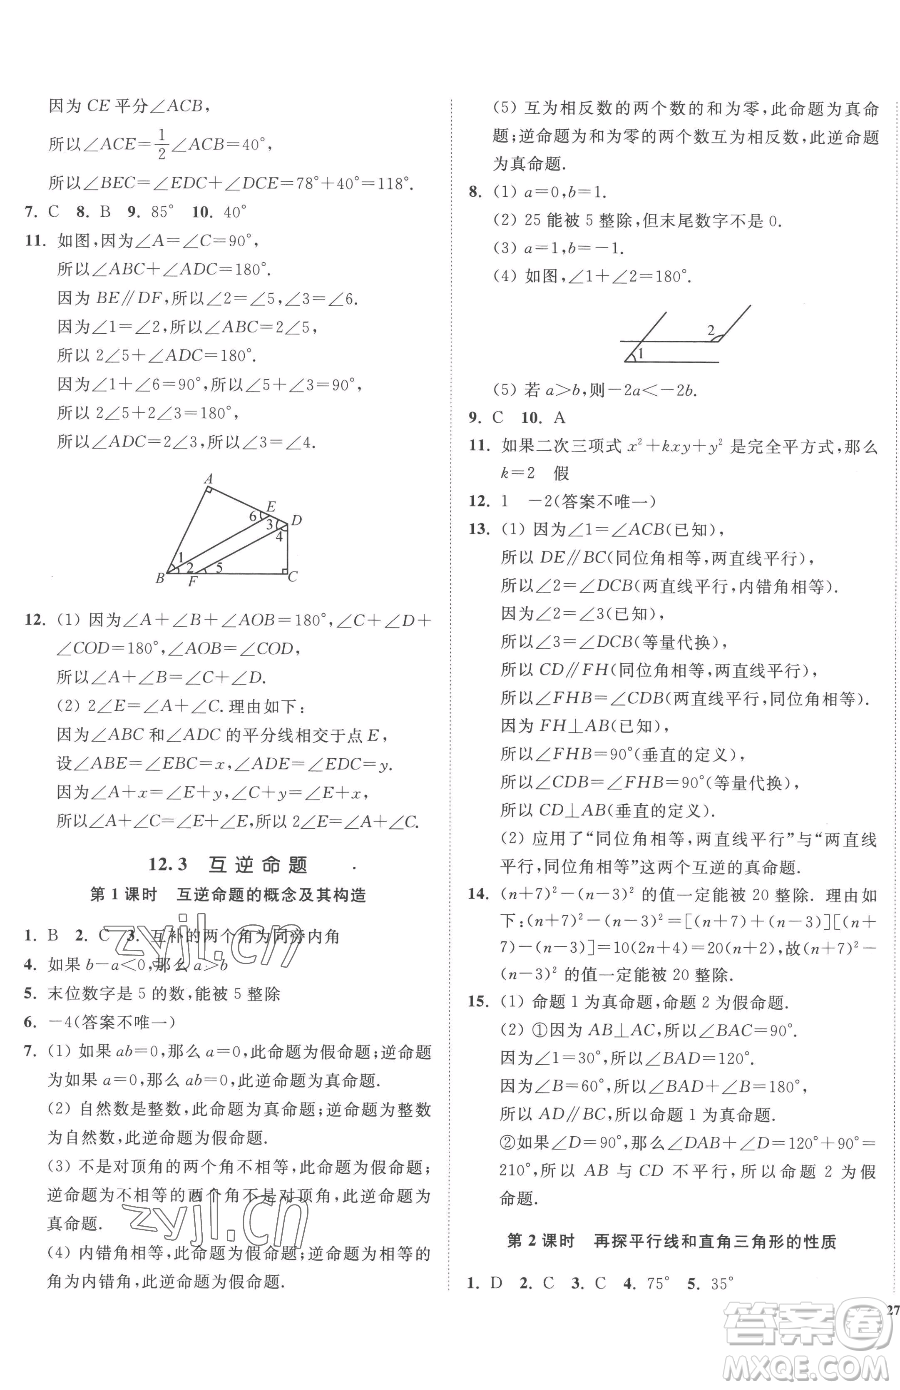 因为 CE 平分∠ACB，
所以∠ACE=1/2∠ACB=40°，
所以∠BEC=∠EDC+∠DCE=78°+40°=118°.
7. C 8. B 9. 85° 10. 40°
11. 如图，因为∠A=∠C=90°，
所以∠ABC+∠ADC=180°.
因为 BE∥DF，所以∠2=∠5，∠3=∠6.
因为∠1=∠2，所以∠ABC=2∠5，
所以 2∠5+∠ADC=180°.
因为∠1+∠6=90°，∠1=∠2=∠5，
所以 2∠5+2∠3=180°，
所以∠ADC=2∠3，所以∠3=∠4.
A
E
6
3
D
4
1
2
5
B F C
12. (1) 因为∠A+∠B+∠AOB=180°，∠C+∠D+
∠COD=180°，∠AOB=∠COD，
所以∠A+∠B=∠C+∠D.
(2) 2∠E=∠A+∠C. 理由如下：
因为∠ABC 和∠ADC 的平分线相交于点 E，
设∠ABE=∠EBC=x，∠ADE=∠EDC=y，
因为∠A+x=∠E+y，∠C+y=∠E+x，
所以∠A+∠C=∠E+∠E，所以 2∠E=∠A+∠C.
12.3 互逆命题
第 1 课时 互逆命题的概念及其构造
1. B 2. C 3. 互补的两个角为同旁内角
4. 如果 b-a<0，那么 a>b
5. 末位数字是 5 的数，能被 5 整除
6. -4(答案不唯一)
7. (1) 如果 ab=0，那么 a=0，此命题为假命题；逆命题
为如果 a=0，那么 ab=0，此逆命题为真命题.
(2) 自然数是整数，此命题为真命题；逆命题为整数
为自然数，此逆命题为假命题.
(3) 不是对顶角的两个角不相等，此命题为假命题；
逆命题为不相等的两个角不是对顶角，此逆命题为
真命题.
(4) 内错角相等，此命题为假命题；逆命题为相等的
角为内错角，此逆命题为假命题.
(5) 互为相反数的两个数的和为零，此命题为真命
题；逆命题为和为零的两个数互为相反数，此逆命题
为真命题.
8. (1) a=0，b=1.
(2) 25 能被 5 整除，但末尾数字不是 0.
(3) a=1，b=-1.
(4) 如图，∠1+∠2=180°.
2
1
(5) 若 a>b，则-2a<-2b.
9. C 10. A
11. 如果二次三项式 x²+kxy+y² 是完全平方式，那么
k=2 假
12. 1 -2(答案不唯一)
13. (1) 因为∠1=∠ACB(已知)，
所以 DE∥BC(同位角相等，两直线平行)，
所以∠2=∠DCB(两直线平行，内错角相等).
因为∠2=∠3(已知)，
所以∠3=∠DCB(等量代换)，
所以 CD∥FH(同位角相等，两直线平行)，
所以∠FHB=∠CDB(两直线平行，同位角相等).
因为 FH⊥AB(已知)，
所以∠FHB=90°(垂直的定义)，
所以∠CDB=∠FHB=90°(等量代换)，
所以 CD⊥AB(垂直的定义).
(2) 应用了“同位角相等，两直线平行”与“两直线
平行，同位角相等”这两个互逆的真命题.
14. (n+7)²-(n-3)² 的值一定能被 20 整除. 理由如
下：(n+7)²-(n-3)²=[(n+7)+(n-3)][(n+
7)-(n-3)]=10(2n+4)=20(n+2)，故(n+7)²-
(n-3)² 的值一定能被 20 整除.
15. (1) 命题 1 为真命题，命题 2 为假命题.
(2) ①因为 AB⊥AC，所以∠BAC=90°.
因为∠1=30°，所以∠BAD=120°.
因为∠B=60°，所以∠BAD+∠B=180°，
所以 AD∥BC，所以命题 1 为真命题.
②如果∠D=90°，那么∠DAB+∠D=120°+90°=
210°，所以 AB 与 CD 不平行，所以命题 2 为假
命题.
第 2 课时 再探平行线和直角三角形的性质
1. D 2. C 3. C 4. 75° 5. 35°
27
zyjl.cn
zyjl.cn
答案圈
MXQE.COM